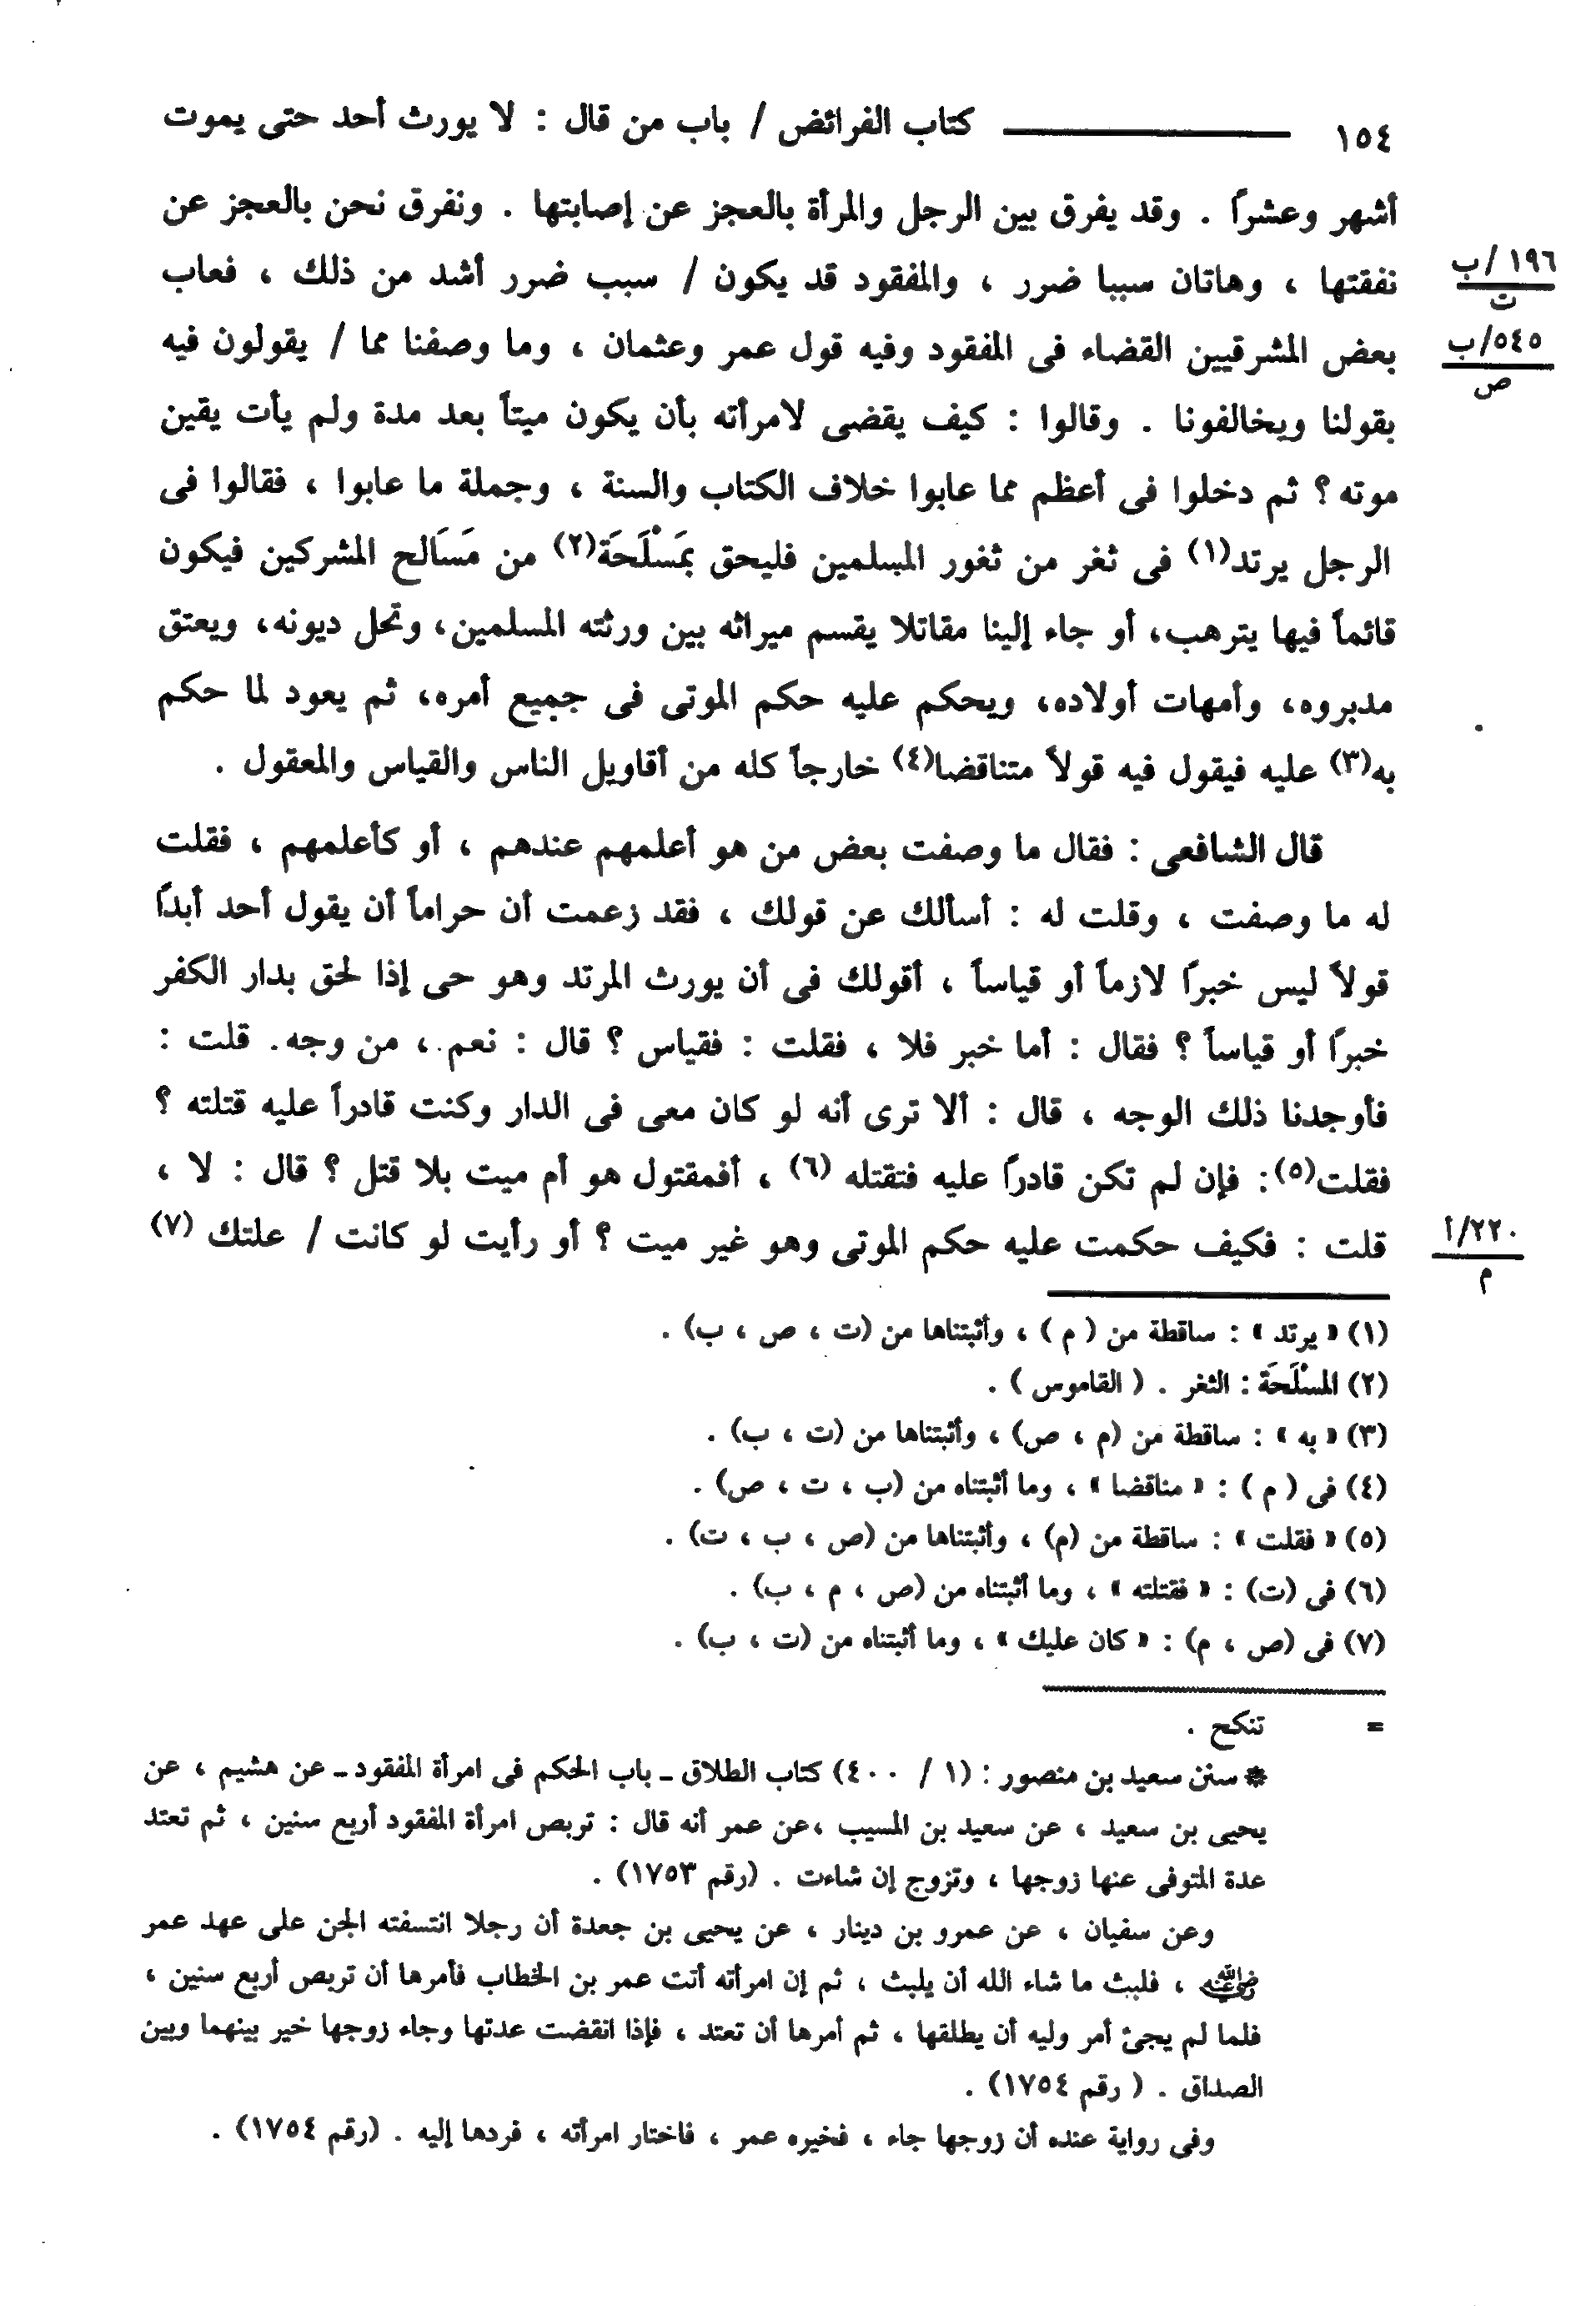 ١٥٤ كتاب الفرائض / باب من قال : لا يورث أحد حتى يموت
أشهر وعشرًا . وقد يفرق بين الرجل والمرأة بالعجز عن إصابتها . ونفرق نحن بالعجز عن
نفقتها ، وهاتان سببا ضرر ، والمفقود قد يكون / سبب ضرر أشد من ذلك ، فعاب
١٩٦/ب
ت
بعض المشرقيين القضاء فى المفقود وفيه قول عمر وعثمان ، وما وصفنا مما / يقولون فيه
٥٤٥/ب
ص
بقولنا ويخالفونا . وقالوا : كيف يقضى لامرأته بأن يكون ميتاً بعد مدة ولم يأت يقين
موته ؟ ثم دخلوا فى أعظم مما عابوا خلاف الكتاب والسنة ، وجملة ما عابوا ، فقالوا فى
الرجل يرتد(١) فى ثغر من ثغور المسلمين فليحق بمَسْلَحَة(٢) من مَسَالح المشركين فيكون
قائماً فيها يترهب، أو جاء إلينا مقاتلا يقسم ميراثه بين ورثته المسلمين، وتحل ديونه، ويعتق
مدبروه، وأمهات أولاده، ويحكم عليه حكم الموتى فى جميع أمره، ثم يعود لما حكم
به(٣) عليه فيقول فيه قولاً متناقضا(٤) خارجاً كله من أقاويل الناس والقياس والمعقول .
قال الشافعى : فقال ما وصفت بعض من هو أعلمهم عندهم ، أو كأعلمهم ، فقلت
له ما وصفت ، وقلت له : أسألك عن قولك ، فقد زعمت أن حراماً أن يقول أحد أبدًا
قولاً ليس خبرًا لازماً أو قياساً ، أقولك فى أن يورث المرتد وهو حى إذا لحق بدار الكفر
خبرًا أو قياساً ؟ فقال : أما خبر فلا ، فقلت : فقياس ؟ قال : نعم ، من وجه . قلت :
فأوجدنا ذلك الوجه ، قال : ألا ترى أنه لو كان معى فى الدار وكنت قادراً عليه قتلته ؟
فقلت(٥): فإن لم تكن قادرًا عليه فتقتله (٦) ، أفمقتول هو أم ميت بلا قتل ؟ قال : لا ،
قلت : فكيف حكمت عليه حكم الموتى وهو غير ميت ؟ أو رأيت لو كانت / علتك (٧)
٢٢٠/أ
م
(١) « يرتد » : ساقطة من ( م ) ، وأثبتناها من (ت ، ص ، ب) .
(٢) المسْلَحَة : الثغر . ( القاموس ) .
(٣) « به » : ساقطة من (م ، ص) ، وأثبتناها من (ت ، ب) .
(٤) فى ( م ) : « مناقضا » ، وما أثبتناه من (ب ، ت ، ص) .
(٥) « فقلت » : ساقطة من (م) ، وأثبتناها من (ص ، ب ، ت) .
(٦) فى (ت) : « فقتلته » ، وما أثبتناه من (ص ، م ، ب) .
(٧) فى (ص ، م) : « كان عليك » ، وما أثبتناه من (ت ، ب) .
= تنكح .
* سنن سعيد بن منصور : (١ / ٤٠٠) كتاب الطلاق ـ باب الحكم فى امرأة المفقود ـ عن هشيم ، عن
يحيى بن سعيد ، عن سعيد بن المسيب ،عن عمر أنه قال : تربص امرأة المفقود أربع سنين ، ثم تعتد
عدة المتوفى عنها زوجها ، وتزوج إن شاءت . (رقم ١٧٥٣) .
وعن سفيان ، عن عمرو بن دينار ، عن يحيى بن جعدة أن رجلا انتسفته الجن على عهد عمر
رضي الله عنه ، فلبث ما شاء الله أن يلبث ، ثم إن امرأته أتت عمر بن الخطاب فأمرها أن تربص أربع سنين ،
فلما لم يجئ أمر وليه أن يطلقها ، ثم أمرها أن تعتد ، فإذا انقضت عدتها وجاء زوجها خير بينهما وبين
الصداق . ( رقم ١٧٥٤) .
وفى رواية عنده أن زوجها جاء ، فخيره عمر ، فاختار امرأته ، فردها إليه . (رقم ١٧٥٤) .